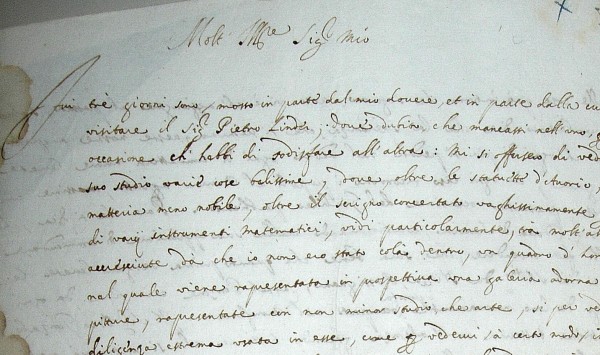 Molt' Ill.re Sig.r Mio
Fui trè giorni sono, mosso in parte dal mio dovere, et in parte dalla
visitare il Sig.r Pietro Linder, dove che mancassi nell'uno,
occasione ch' habbi di sodisfare all'altra: Mi si offersero di ved
suo studio varie cose belissime, dove, oltre le statuette d'Avorio,
matteria meno nobile, oltre il scrigno concertato vaghissimamente
di varij instrumenti matematici, vidi particolarmente, trà molt'al
accresciute dà che io non ero stato colà dentro, un quadro d'
nel quale viene rapresentata in prospettiva una galeria adorna
piture, rapresentate con non minor studio, che arte, si per ved
diligenza estrema usata in esse, come vedervi sà certo nudo,